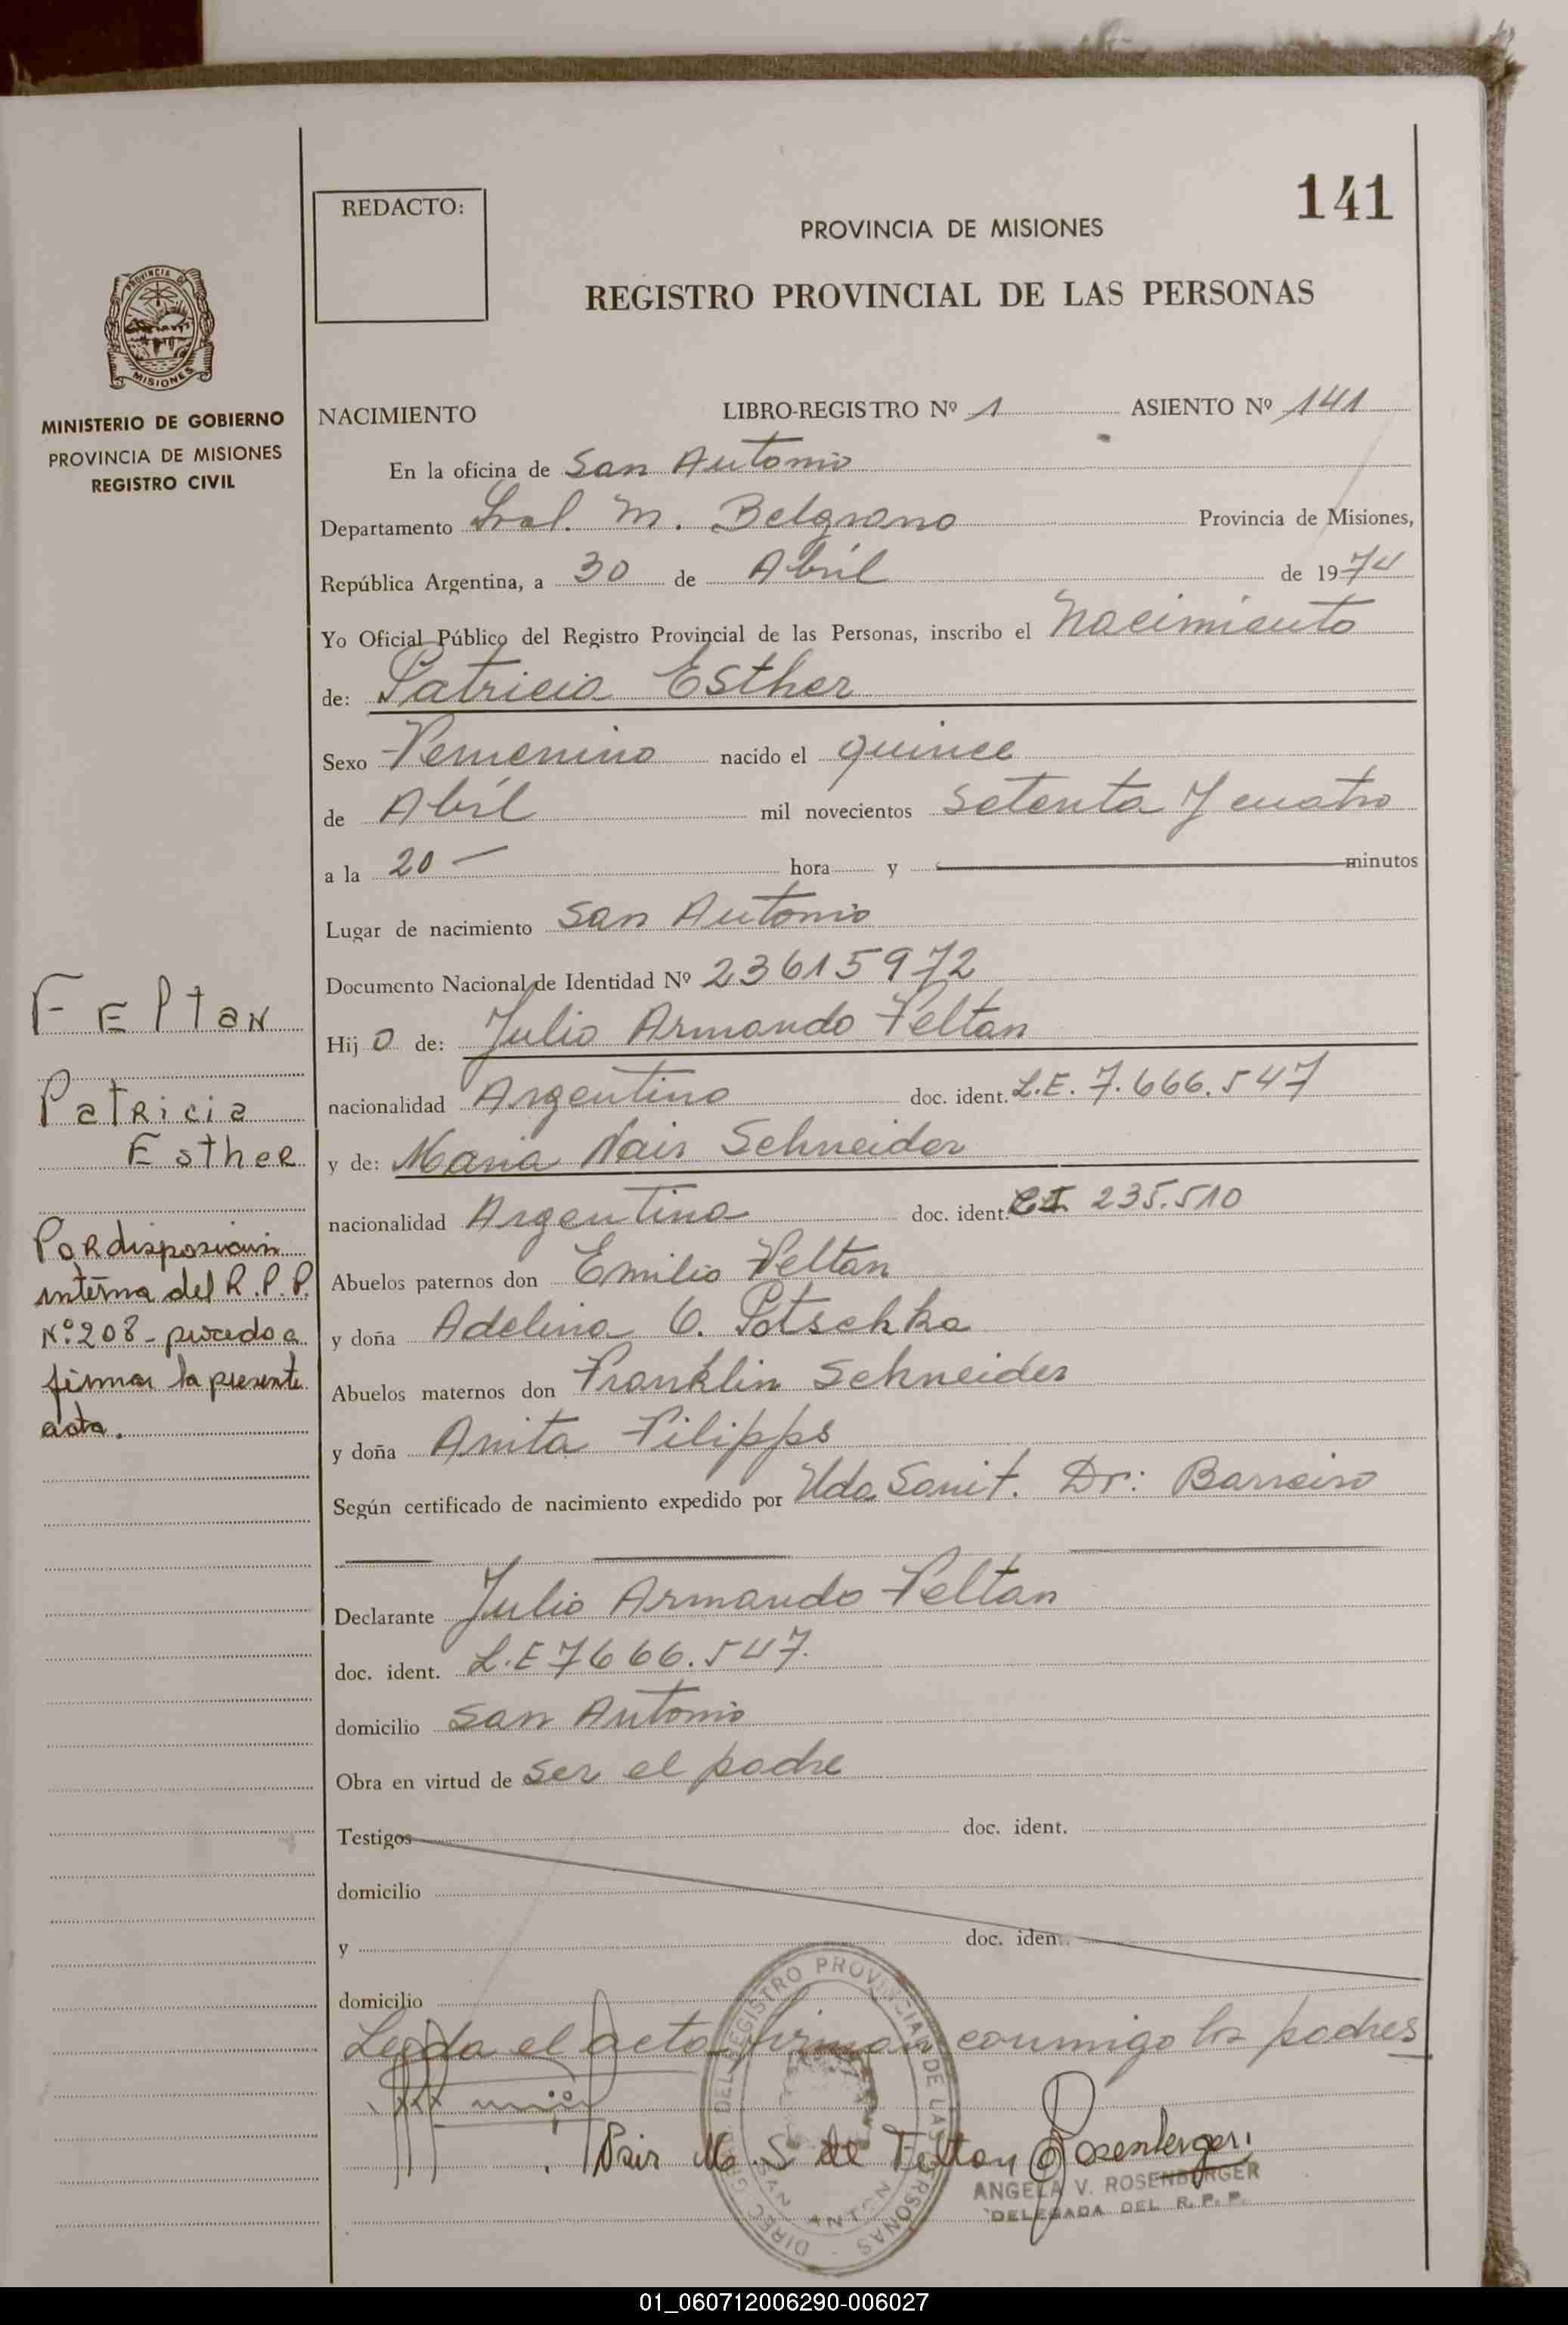 141
REDACTO:
PROVINCIA DE MISIONES
REGISTRO PROVINCIAL DE LAS PERSONAS
PROVINCIA DE
MISIONES
MINISTERIO DE GOBIERNO
PROVINCIA DE MISIONES
REGISTRO CIVIL
NACIMIENTO LIBRO-REGISTRO Nº 1 ASIENTO Nº 141
En la oficina de San Antonio
Departamento Gral. M. Belgrano Provincia de Misiones,
República Argentina, a 30 de Abril de 1974
Yo Oficial Público del Registro Provincial de las Personas, inscribo el Nacimiento
de: Patricia Esther
Sexo Femenino nacido el quince
de Abril mil novecientos Setenta y cuatro
a la 20 — hora y — minutos
Lugar de nacimiento San Antonio
Documento Nacional de Identidad Nº 23615972
Hij a de: Julio Armando Feltan
nacionalidad Argentino doc. ident. L.E. 7.666.547
y de: Maria Nair Schneider
nacionalidad Argentina doc. ident. C.I. 235.510
Abuelos paternos don Emilio Feltan
y doña Adelina O. Potschka
Abuelos maternos don Franklin Schneider
y doña Anita Filipps
Según certificado de nacimiento expedido por Uda. Sanit. Dr: Barreiro
Declarante Julio Armando Feltan
doc. ident. L.E 7666.547.
domicilio San Antonio
Obra en virtud de ser el padre
Testigos doc. ident.
domicilio
y doc. iden
domicilio
Leyda el acta firman conmigo los padres
Nair M. S de Feltan Rosenberger
ANGELA V. ROSENBERGER
DELEGADA DEL R. P. P.
DIREC. GRAL. DEL REGISTRO PROVINCIAL DE LAS PERSONAS
SAN ANTONIO
Feltan
Patricia
Esther
Por disposicion
interna del R.P.P.
Nº 208 - procedo a
firmar la presente
acta.
01_060712006290-006027